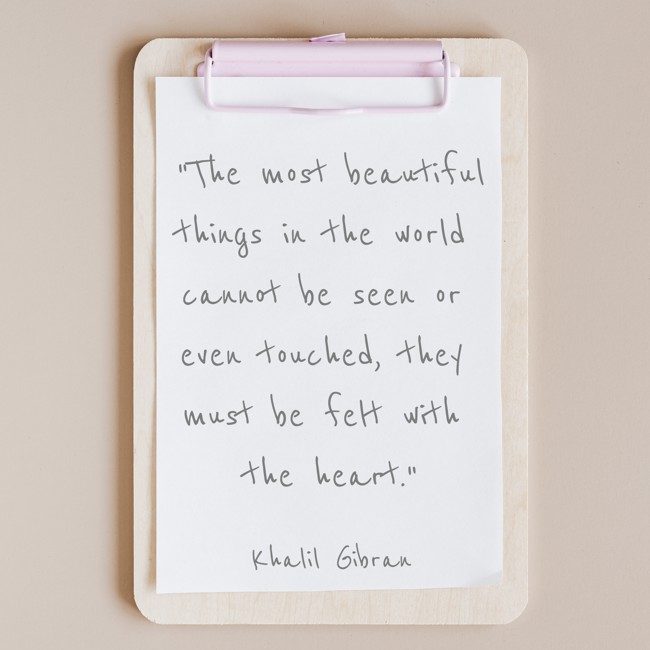 "The most beautiful
things in the world
cannot be seen or
even touched, they
must be felt with
the heart."
Khalil Gibran